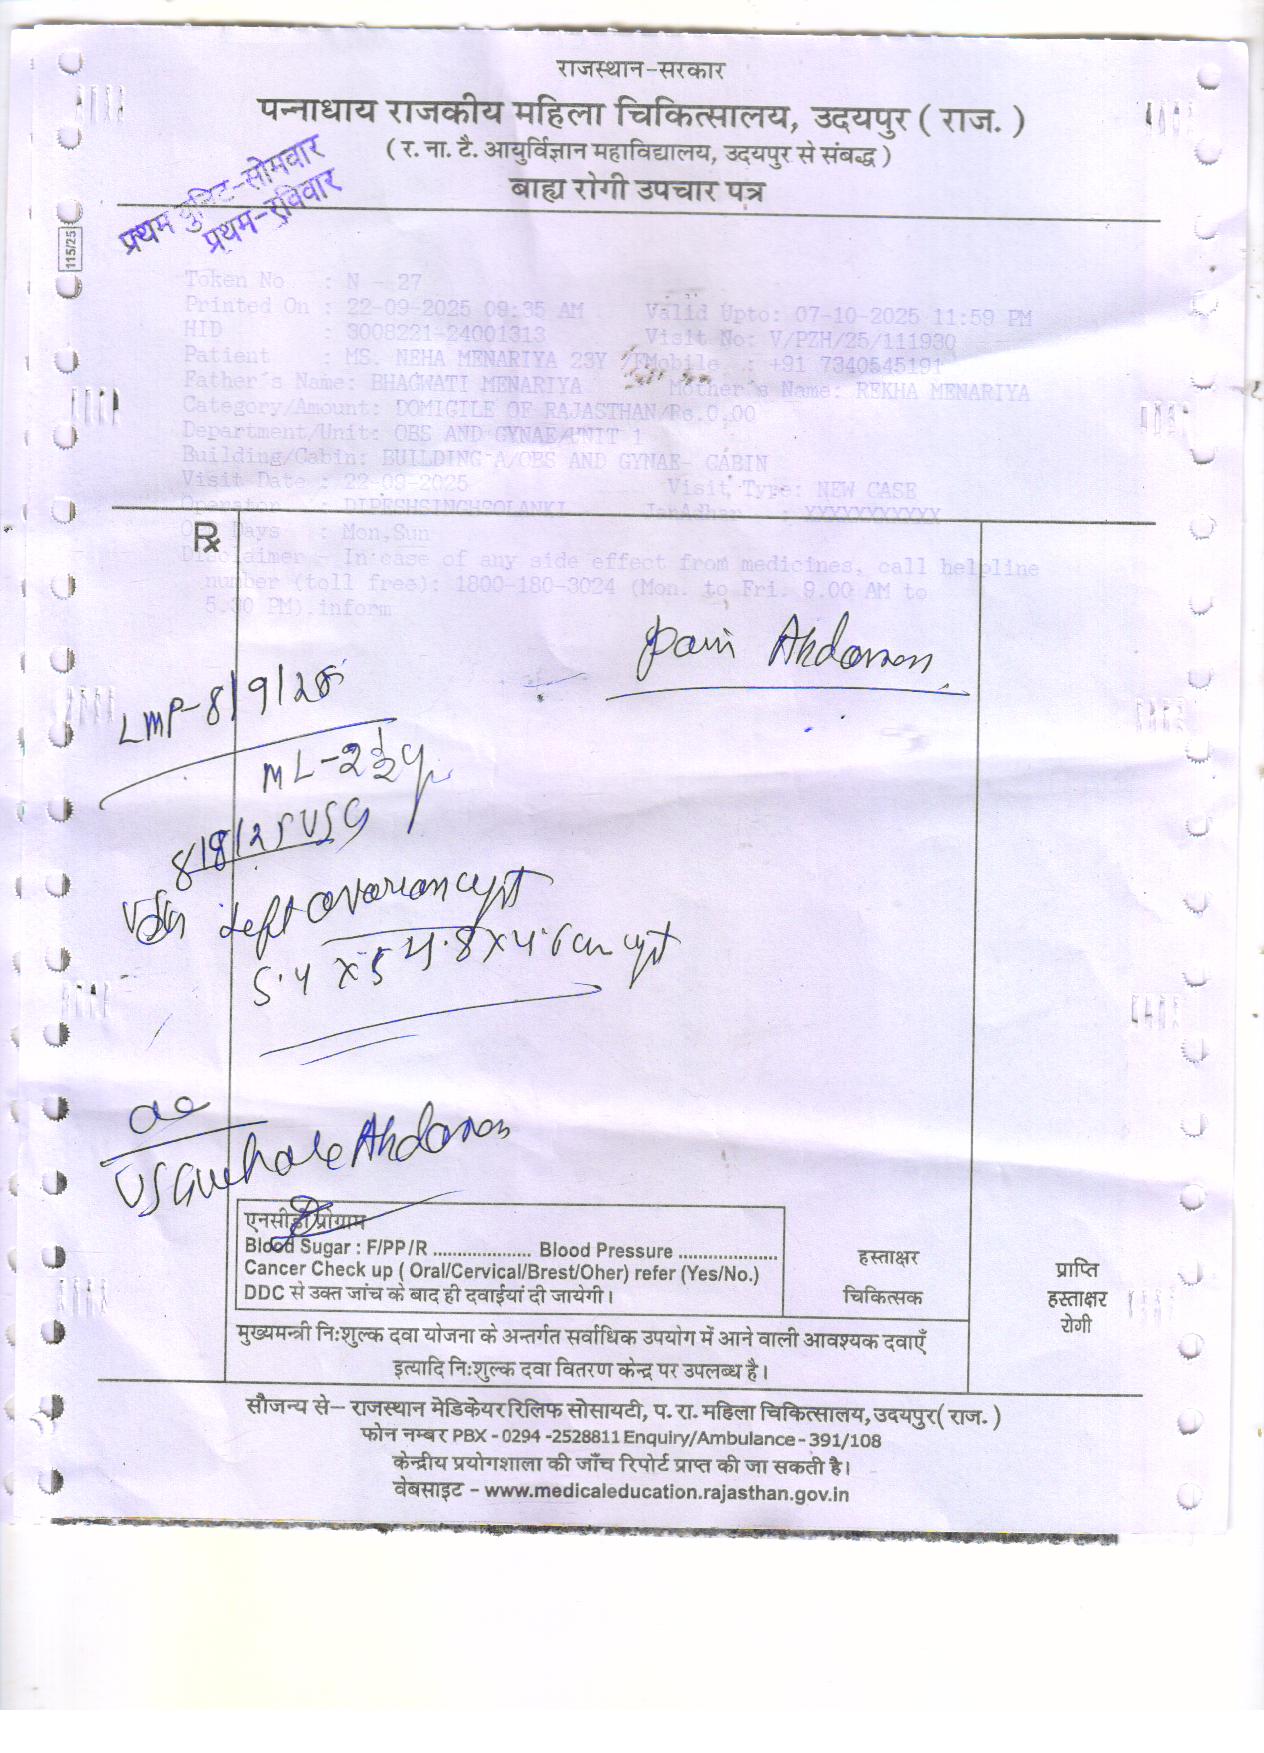 राजस्थान-सरकार
पन्नाधाय राजकीय महिला चिकित्सालय, उदयपुर ( राज. )
( र. ना. टै. आयुर्विज्ञान महाविद्यालय, उदयपुर से संबद्ध )
बाह्य रोगी उपचार पत्र
प्रथम युनिट-सोमवार
प्रथम-रविवार
115/25
Token No : N - 27
Printed On : 22-09-2025 09:35 AM Valid Upto: 07-10-2025 11:59 PM
HID : 3008221-24001313 Visit No: V/PZH/25/111930
Patient : MS. NEHA MENARIYA 23Y /F Mobile : +91 7340545191
Father's Name: BHAGWATI MENARIYA Mother's Name: REKHA MENARIYA
Category/Amount: DOMICILE OF RAJASTHAN/Rs.0.00
Department/Unit: OBS AND GYNAE/UNIT 1
Building/Cabin: BUILDING A/OBS AND GYNAE- CABIN
Visit Date : 22-09-2025 Visit Type: NEW CASE
Operator : DIPESHSINGHSOLANKI JanAdhar : XXXXXXXXXXX
Days : Mon,Sun
Rx
Disclaimer - In case of any side effect from medicines, call helpline
number (toll free): 1800-180-3024 (Mon. to Fri. 9.00 AM to
5.30 PM).inform
pain Abdomen
LMP-8/9/25
ML-2½y
8/8/25 USG
Left ovarian cyst
5.4 x 5 4.8 x 4.6 cm cyst
USG whole Abdomen
एनसीडी प्रोग्राम
Blood Sugar : F/PP/R .................... Blood Pressure ....................
Cancer Check up ( Oral/Cervical/Brest/Oher) refer (Yes/No.)
DDC से उक्त जांच के बाद ही दवाईयां दी जायेगी।
हस्ताक्षर
चिकित्सक
प्राप्ति
हस्ताक्षर
रोगी
मुख्यमन्त्री निःशुल्क दवा योजना के अन्तर्गत सर्वाधिक उपयोग में आने वाली आवश्यक दवाएँ
इत्यादि निःशुल्क दवा वितरण केन्द्र पर उपलब्ध है।
सौजन्य से– राजस्थान मेडिकेयर रिलिफ सोसायटी, प. रा. महिला चिकित्सालय, उदयपुर( राज. )
फोन नम्बर PBX - 0294 -2528811 Enquiry/Ambulance - 391/108
केन्द्रीय प्रयोगशाला की जाँच रिपोर्ट प्राप्त की जा सकती है।
वेबसाइट – www.medicaleducation.rajasthan.gov.in